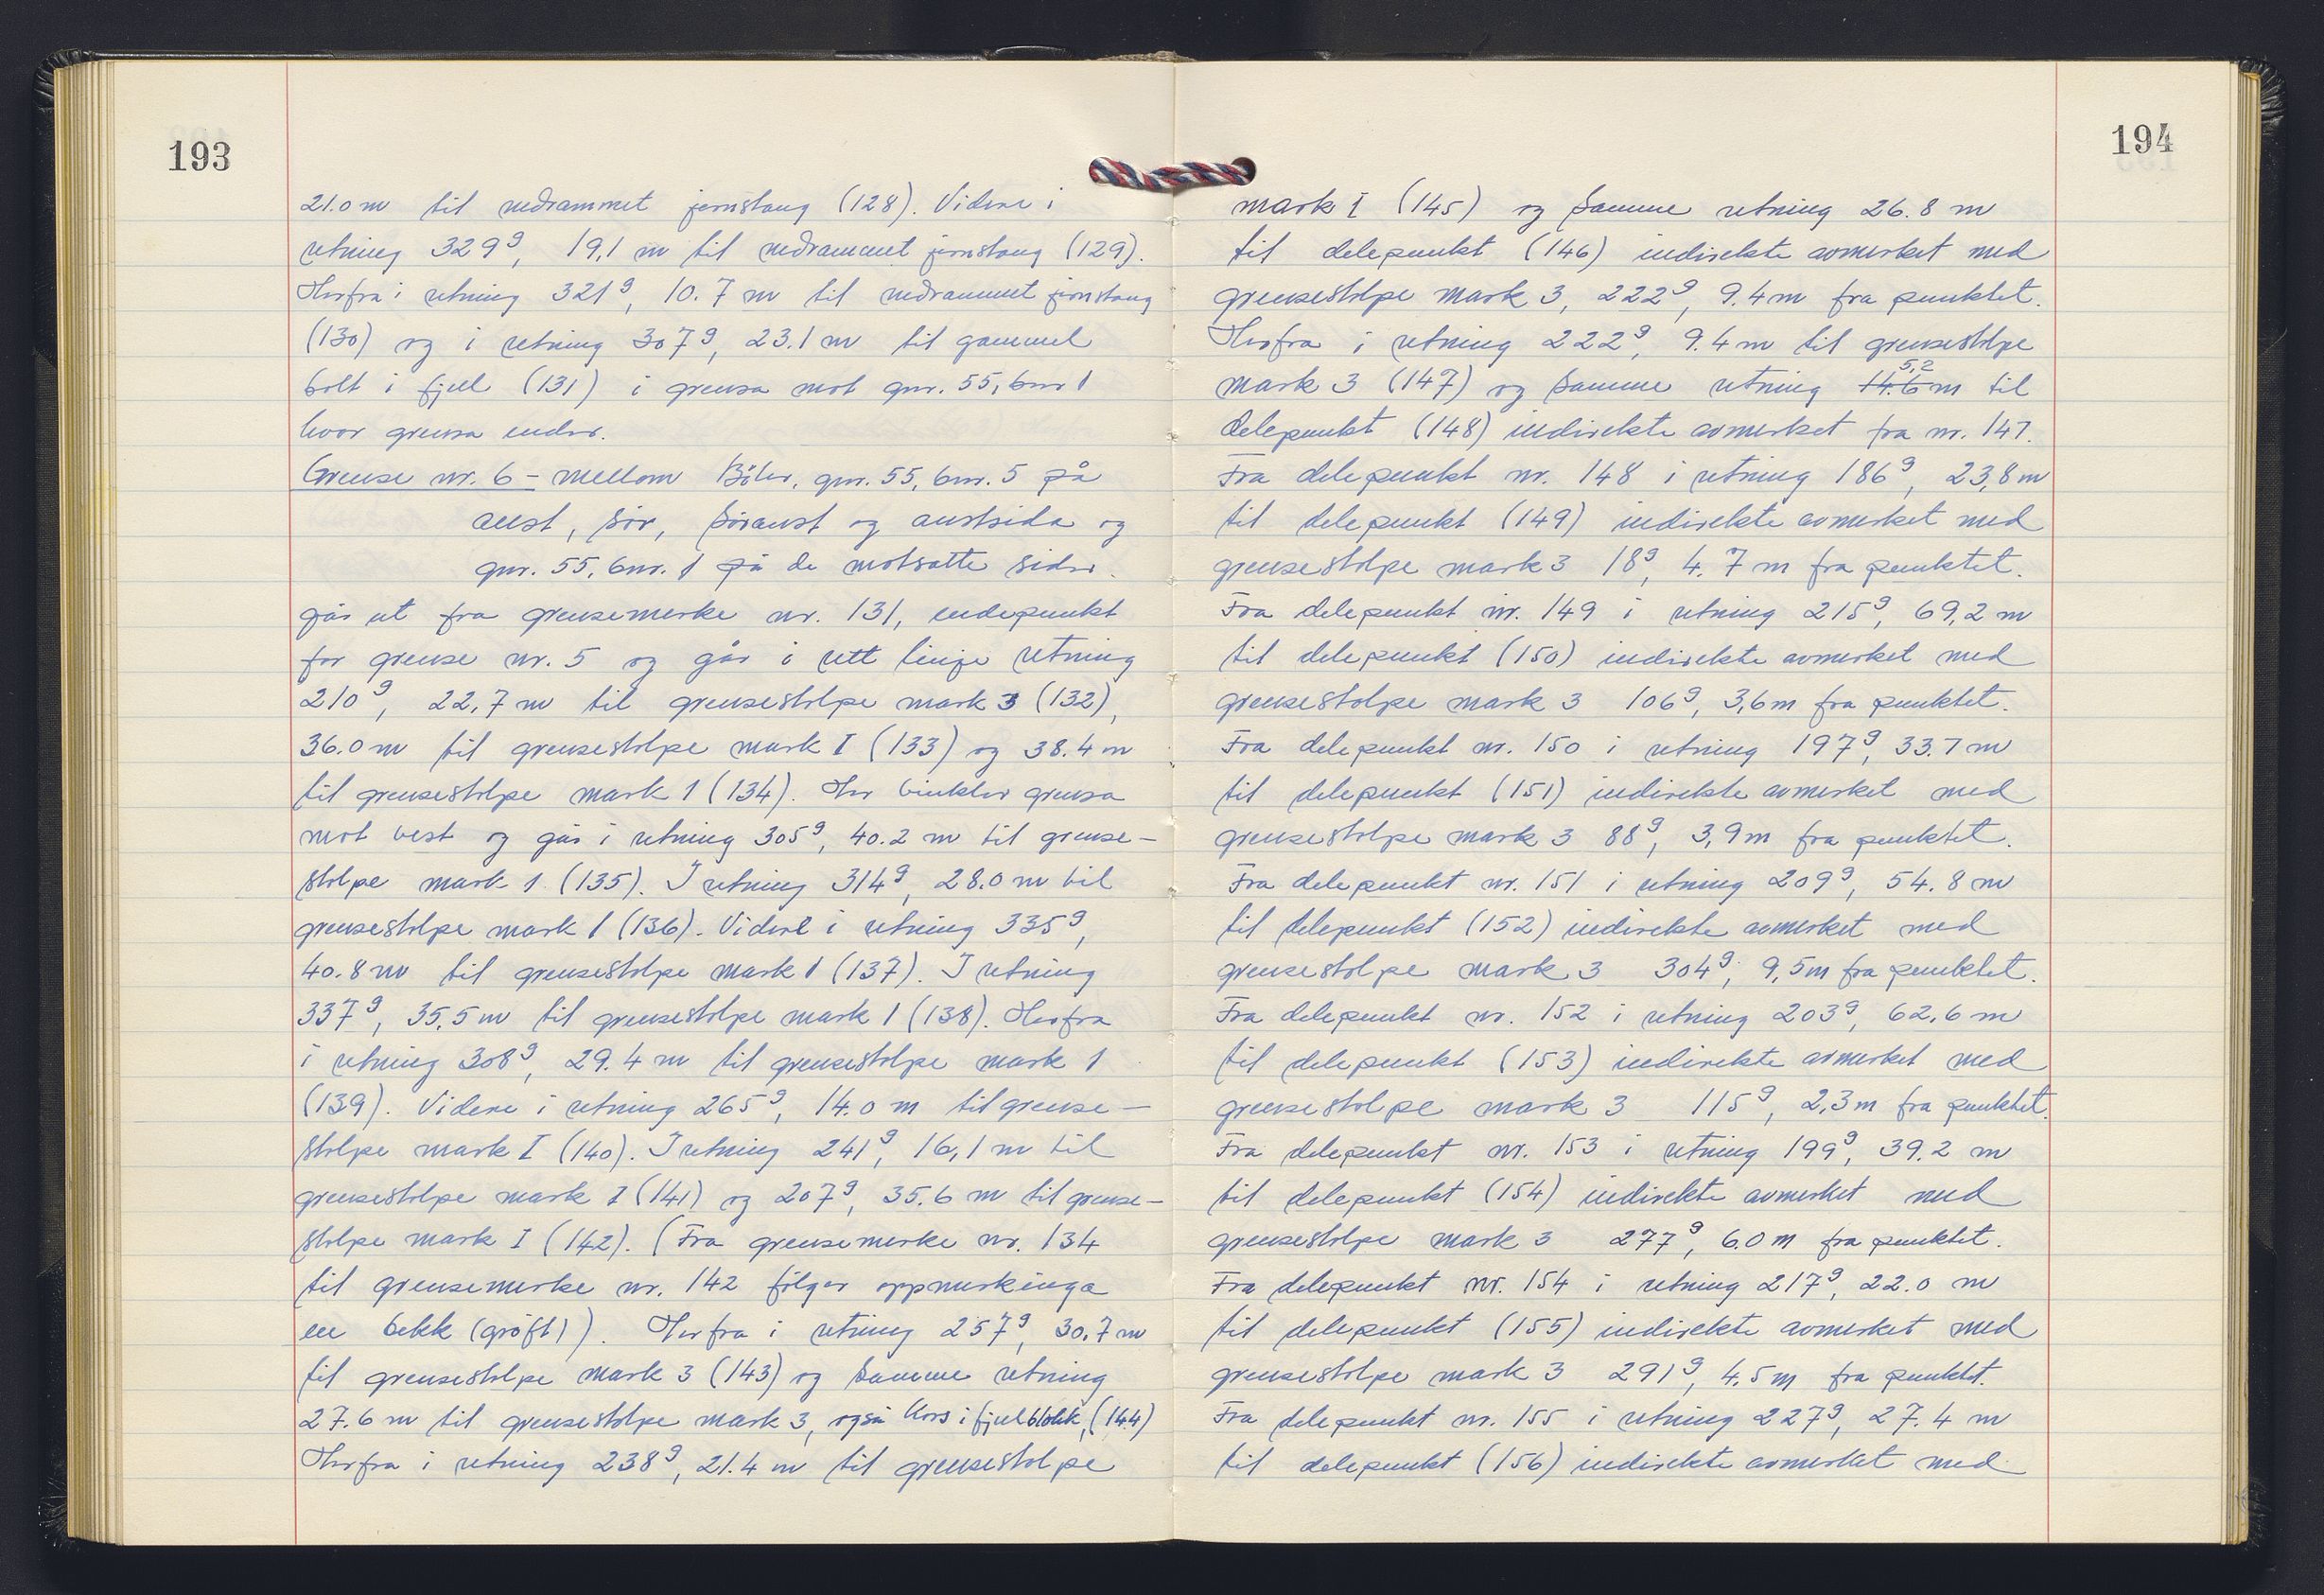 193
21.0 m til nedrammet jernstang (128). Videre i
retning 329g, 19,1 m til nedrammet jernstang (129).
Herfra i retning 321g, 10.7 m til nedrammet jernstang
(130) og i retning 307g, 23.1 m til gammel
bolt i fjell (131) i grensa mot gnr. 55, bnr 1
hvor grensa ender.
Grense nr. 6 - mellom Böler, gnr. 55, bnr. 5 på
aust, sör, söraust og austsida og
gnr. 55, bnr. 1 på de motsatte sider.
går ut fra grensemerke nr. 131, endepunkt
for grense nr. 5 og går i rett linje retning
210g, 22,7 m til grensestolpe mark 3 (132),
36.0 m til grensestolpe mark I (133) og 38.4 m
til grensestolpe mark 1 (134). Her vinkler grensa
mot vest og går i retning 305g, 40.2 m til grense-
stolpe mark 1 (135). I retning 314g, 28.0 m til
grensestolpe mark 1 (136). Videre i retning 335g,
40.8 m til grensestolpe mark 1 (137). I retning
337g, 35,5 m til grensestolpe mark 1 (138). Herfra
i retning 308g, 29.4 m til grensestolpe mark 1
(139). Videre i retning 265g, 14.0 m til grense-
stolpe mark I (140). I retning 241g, 16,1 m til
grensestolpe mark I (141) og 207g, 35.6 m til grense-
stolpe mark I (142). (Fra grensemerke nr. 134
til grensemerke nr. 142 fölger oppmerkinga
en bekk (gröft)). Herfra i retning 257g, 30.7 m
til grensestolpe mark 3 (143) og samme retning
27.6 m til grensestolpe mark 3, også kors i fjellblokk, (144)
Herfra i retning 238g, 21.4 m til grensestolpe
194
mark I (145) og samme retning 26.8 m
til delepunkt (146) indirekte avmerket med
grensestolpe mark 3, 222g, 9.4 m fra punktet.
Herfra i retning 222g, 9.4 m til grensestolpe
mark 3 (147) og samme retning 14.6 5,2 m til
delepunkt (148) indirekte avmerket fra nr. 147.
Fra delepunkt nr. 148 i retning 186g, 23,8 m
til delepunkt (149) indirekte avmerket med
grensestolpe mark 3 18g, 4.7 m fra punktet.
Fra delepunkt nr. 149 i retning 215g, 69,2 m
til delepunkt (150) indirekte avmerket med
grensestolpe mark 3 106g, 3,6 m fra punktet.
Fra delepunkt nr. 150 i retning 197g, 33.7 m
til delepunkt (151) indirekte avmerket med
grensestolpe mark 3 88g, 3,9 m fra punktet.
Fra delepunkt nr. 151 i retning 209g, 54.8 m
til delepunkt (152) indirekte avmerket med
grensestolpe mark 3 304g, 9,5 m fra punktet.
Fra delepunkt nr. 152 i retning 203g, 62.6 m
til delepunkt (153) indirekte avmerket med
grensestolpe mark 3 115g, 2,3 m fra punktet.
Fra delepunkt nr. 153 i retning 199g, 39.2 m
til delepunkt (154) indirekte avmerket med
grensestolpe mark 3 277g, 6.0 m fra punktet.
Fra delepunkt nr. 154 i retning 217g, 22.0 m
til delepunkt (155) indirekte avmerket med
grensestolpe mark 3 291g, 4.5 m fra punktet.
Fra delepunkt nr. 155 i retning 227g, 27.4 m
til delepunkt (156) indirekte avmerket med